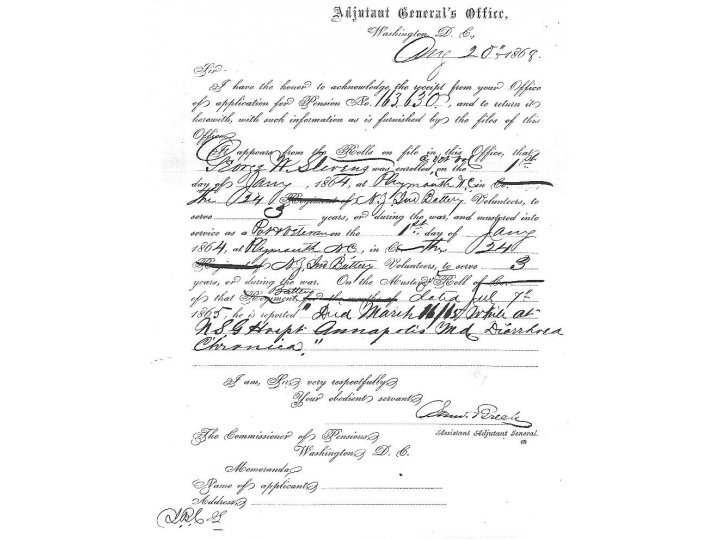 Adjutant General's Office,
Washington, D. C.,
Aug 20th, 1868.
Sir:
I have the honor to acknowledge the receipt from your Office
of application for Pension No. 163,630, and to return it
herewith, with such information as is furnished by the files of this
Office.
It appears from the Rolls on file in this Office, that
George W. Stevens was enrolled on the 1st
day of Jany, 1864, at Plymouth N.C. in Co.
the 24 Regiment of N.Y. Ind Battery Volunteers, to
serve 3 years, or during the war, and mustered into
service as a Pvt Veteran on the 1st day of Jany
1864, at Plymouth N.C., in Co. the 24
Regiment of N.Y. Ind Battery Volunteers, to serve 3
years, or during the war. On the Muster Roll of Co.
Battery
of that Regiment, for the months of dated 7th
1865, he is reported "Died March 16/65 while at
U.S.G. Hospt Annapolis Md Diarrhoea
Chronica."
I am, Sir, very respectfully,
Your obedient servant,
Saml Breck
Assistant Adjutant General.
The Commissioner of Pensions,
Washington, D. C.
Memoranda,
Name of applicant,
Address,